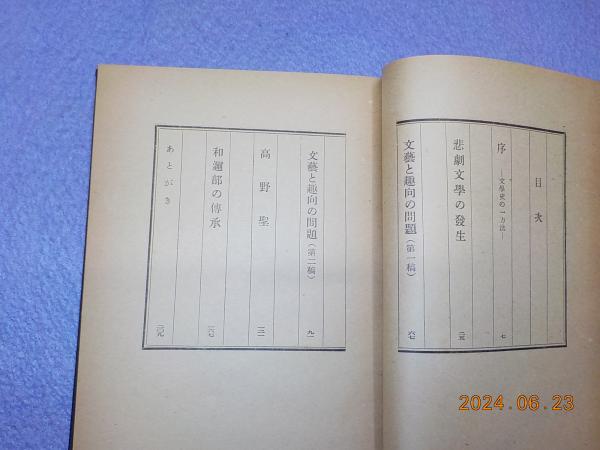 目次
序 ―文學史の一方法― 七
悲劇文學の發生 二五
文藝と趣向の問題（第一稿） 六七
文藝と趣向の問題（第二稿） 九一
高野聖
和邇部の傳承
あとがき
2024.06.23